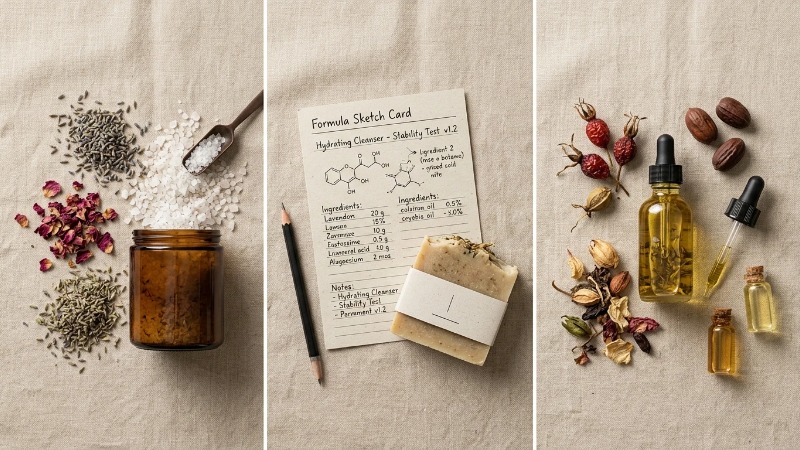 Formula Sketch Card
Hydrating Cleanser - Stability Test v1.2
OH
O
OH
OH
Ligredient 2
(mse a botame)
Ingredients:
Lavendon 20 g
Lawson 15%
Zavemmre 10 g
Eostossime 0.5 g
Linaeerol acid 1.0 g
Alugoesium 2 mos
Ingredients:
calairon oil 0.5%
ceyobis oil - 5.0%
Notes:
- Hydrating Cleanser
- Stability Test
- Pornament v1.2